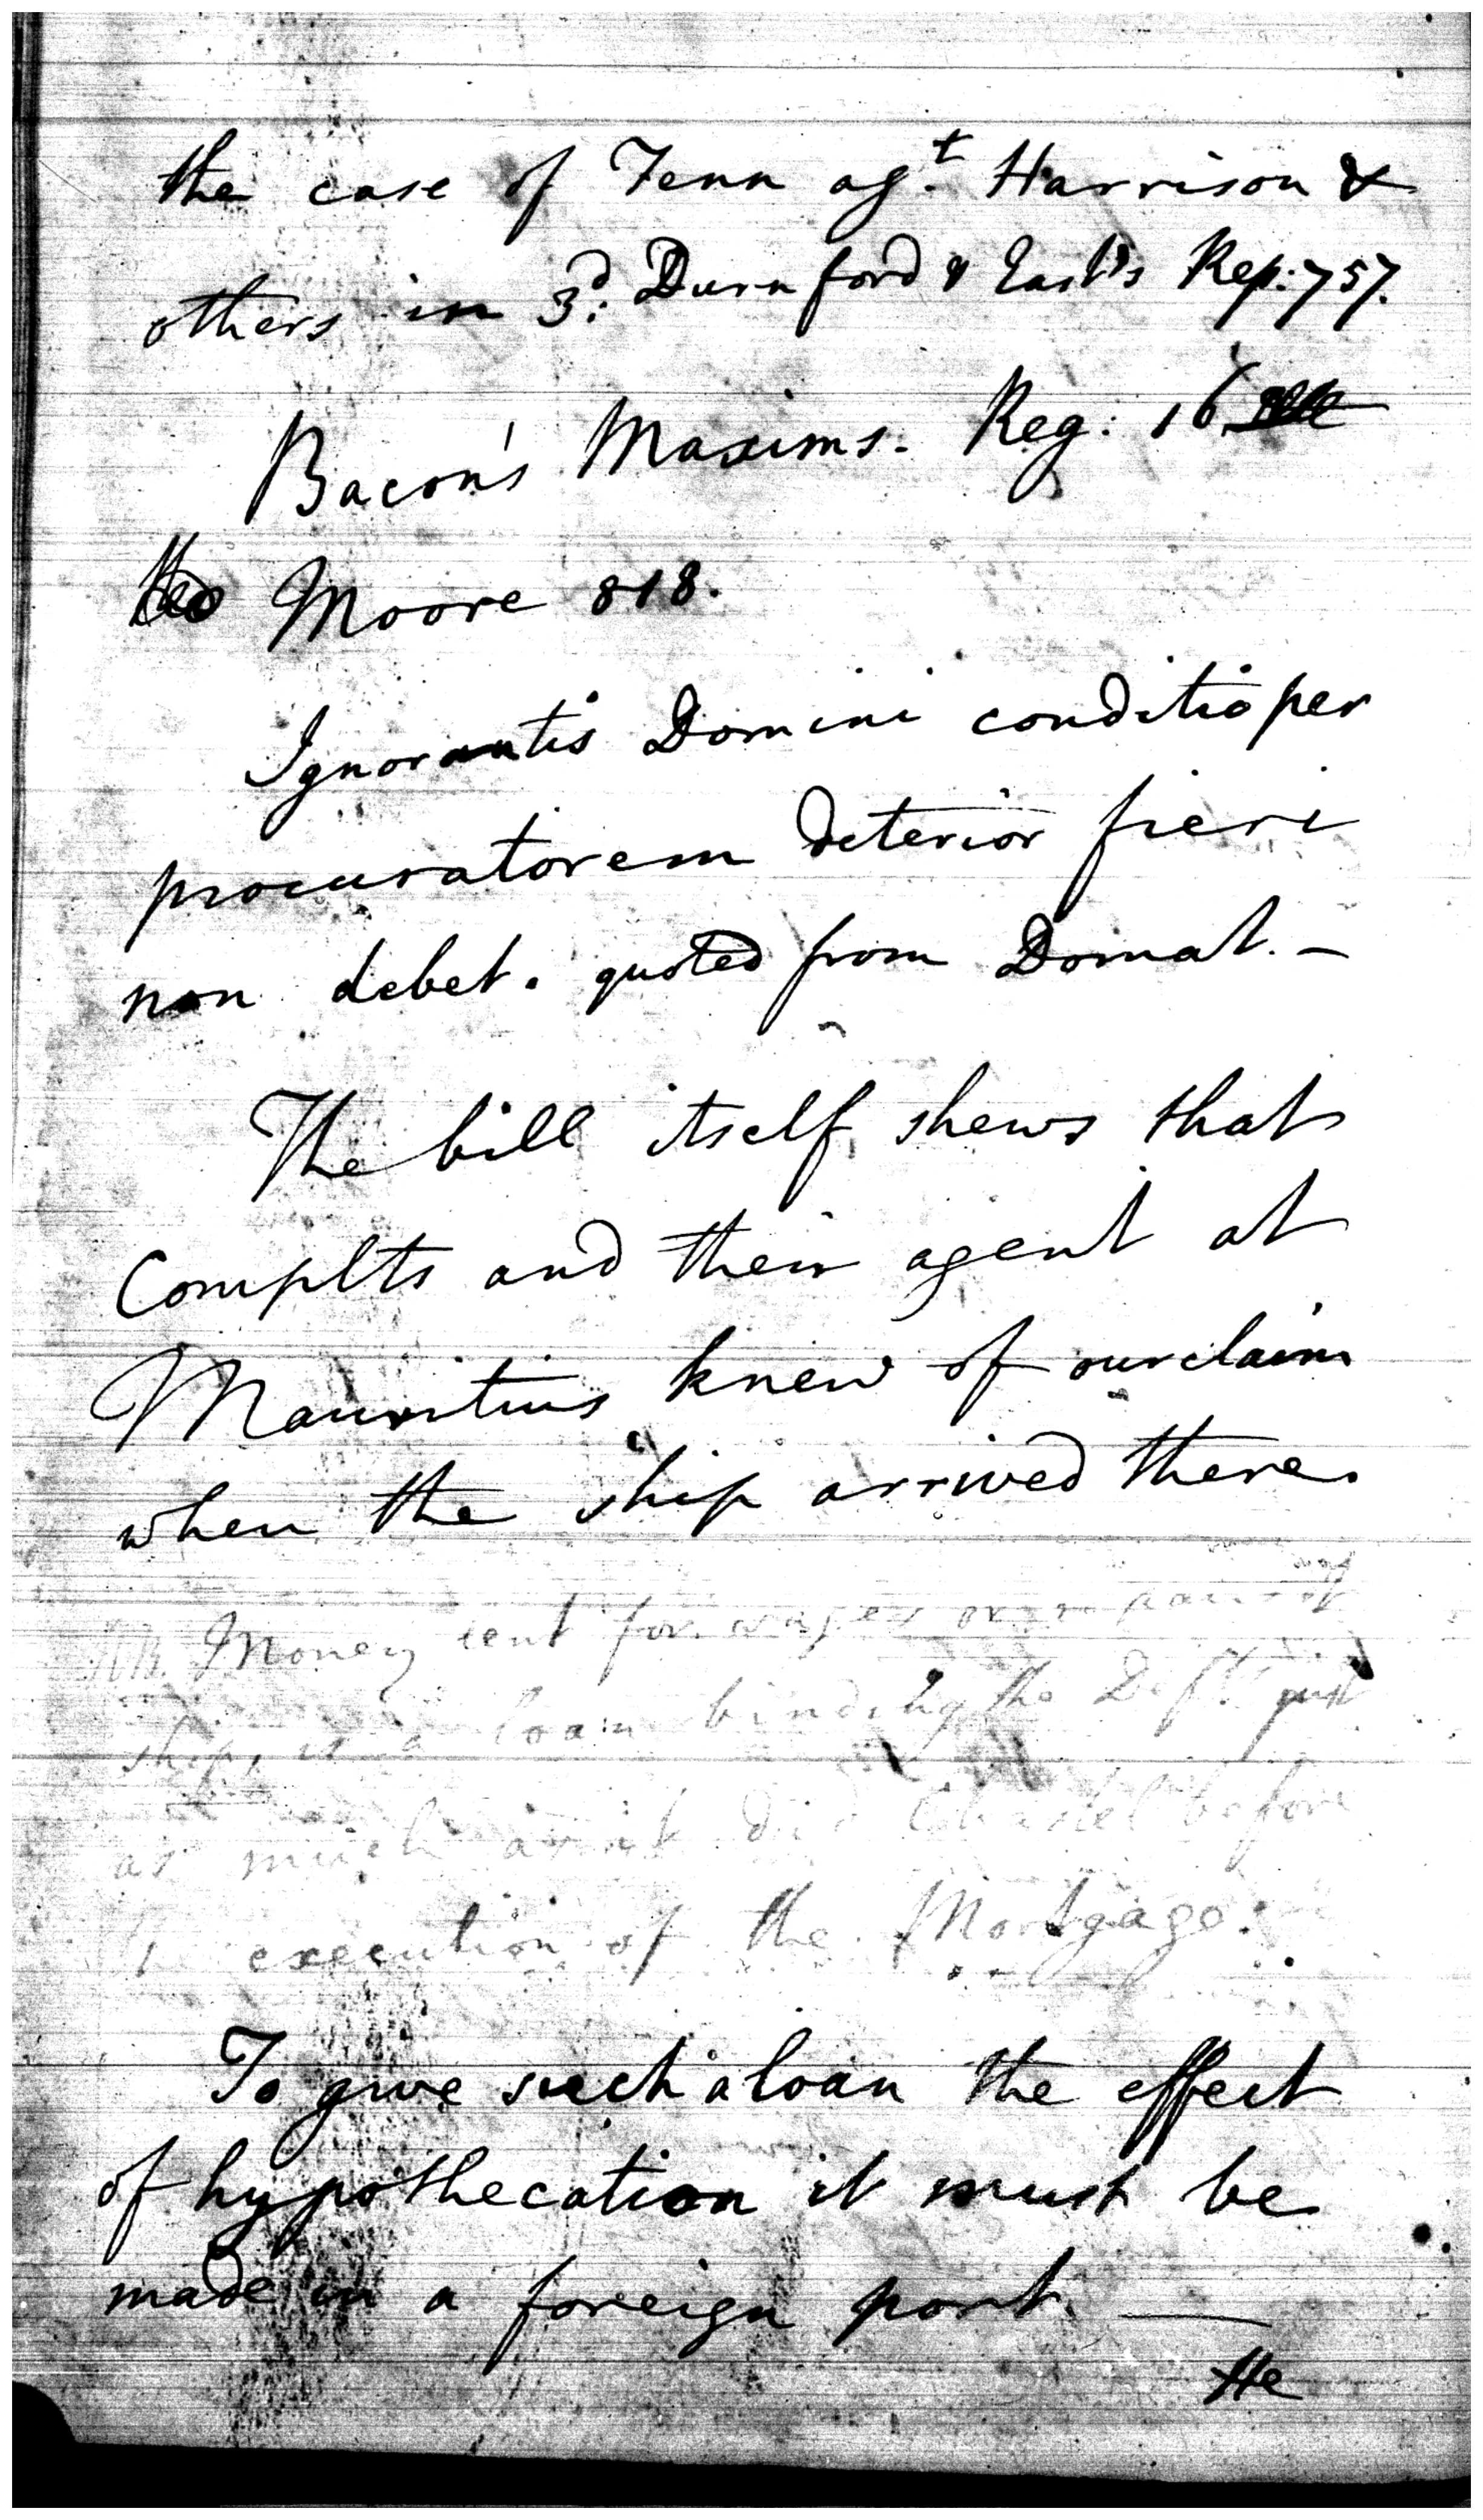 the case of Fenn agt. Harrison &
others in 3d. Durnford & East's Rep: 757.
Bacon's Maxims. Reg: 16
Moore 818.
Ignorantis Domini conditio per
procuratorem deterior fieri
non debet. quoted from Domat. —
The bill itself shews that
Complts and their agent at
Mauritius knew of our claim
when the ship arrived there.
NB. Money lent for wages or repairs of
ship, is a loan binding the Deft. just
as much as it did before
execution of the Mortgage.
To give such a loan the effect
of hypothecation it must be
made in a foreign port. —
He